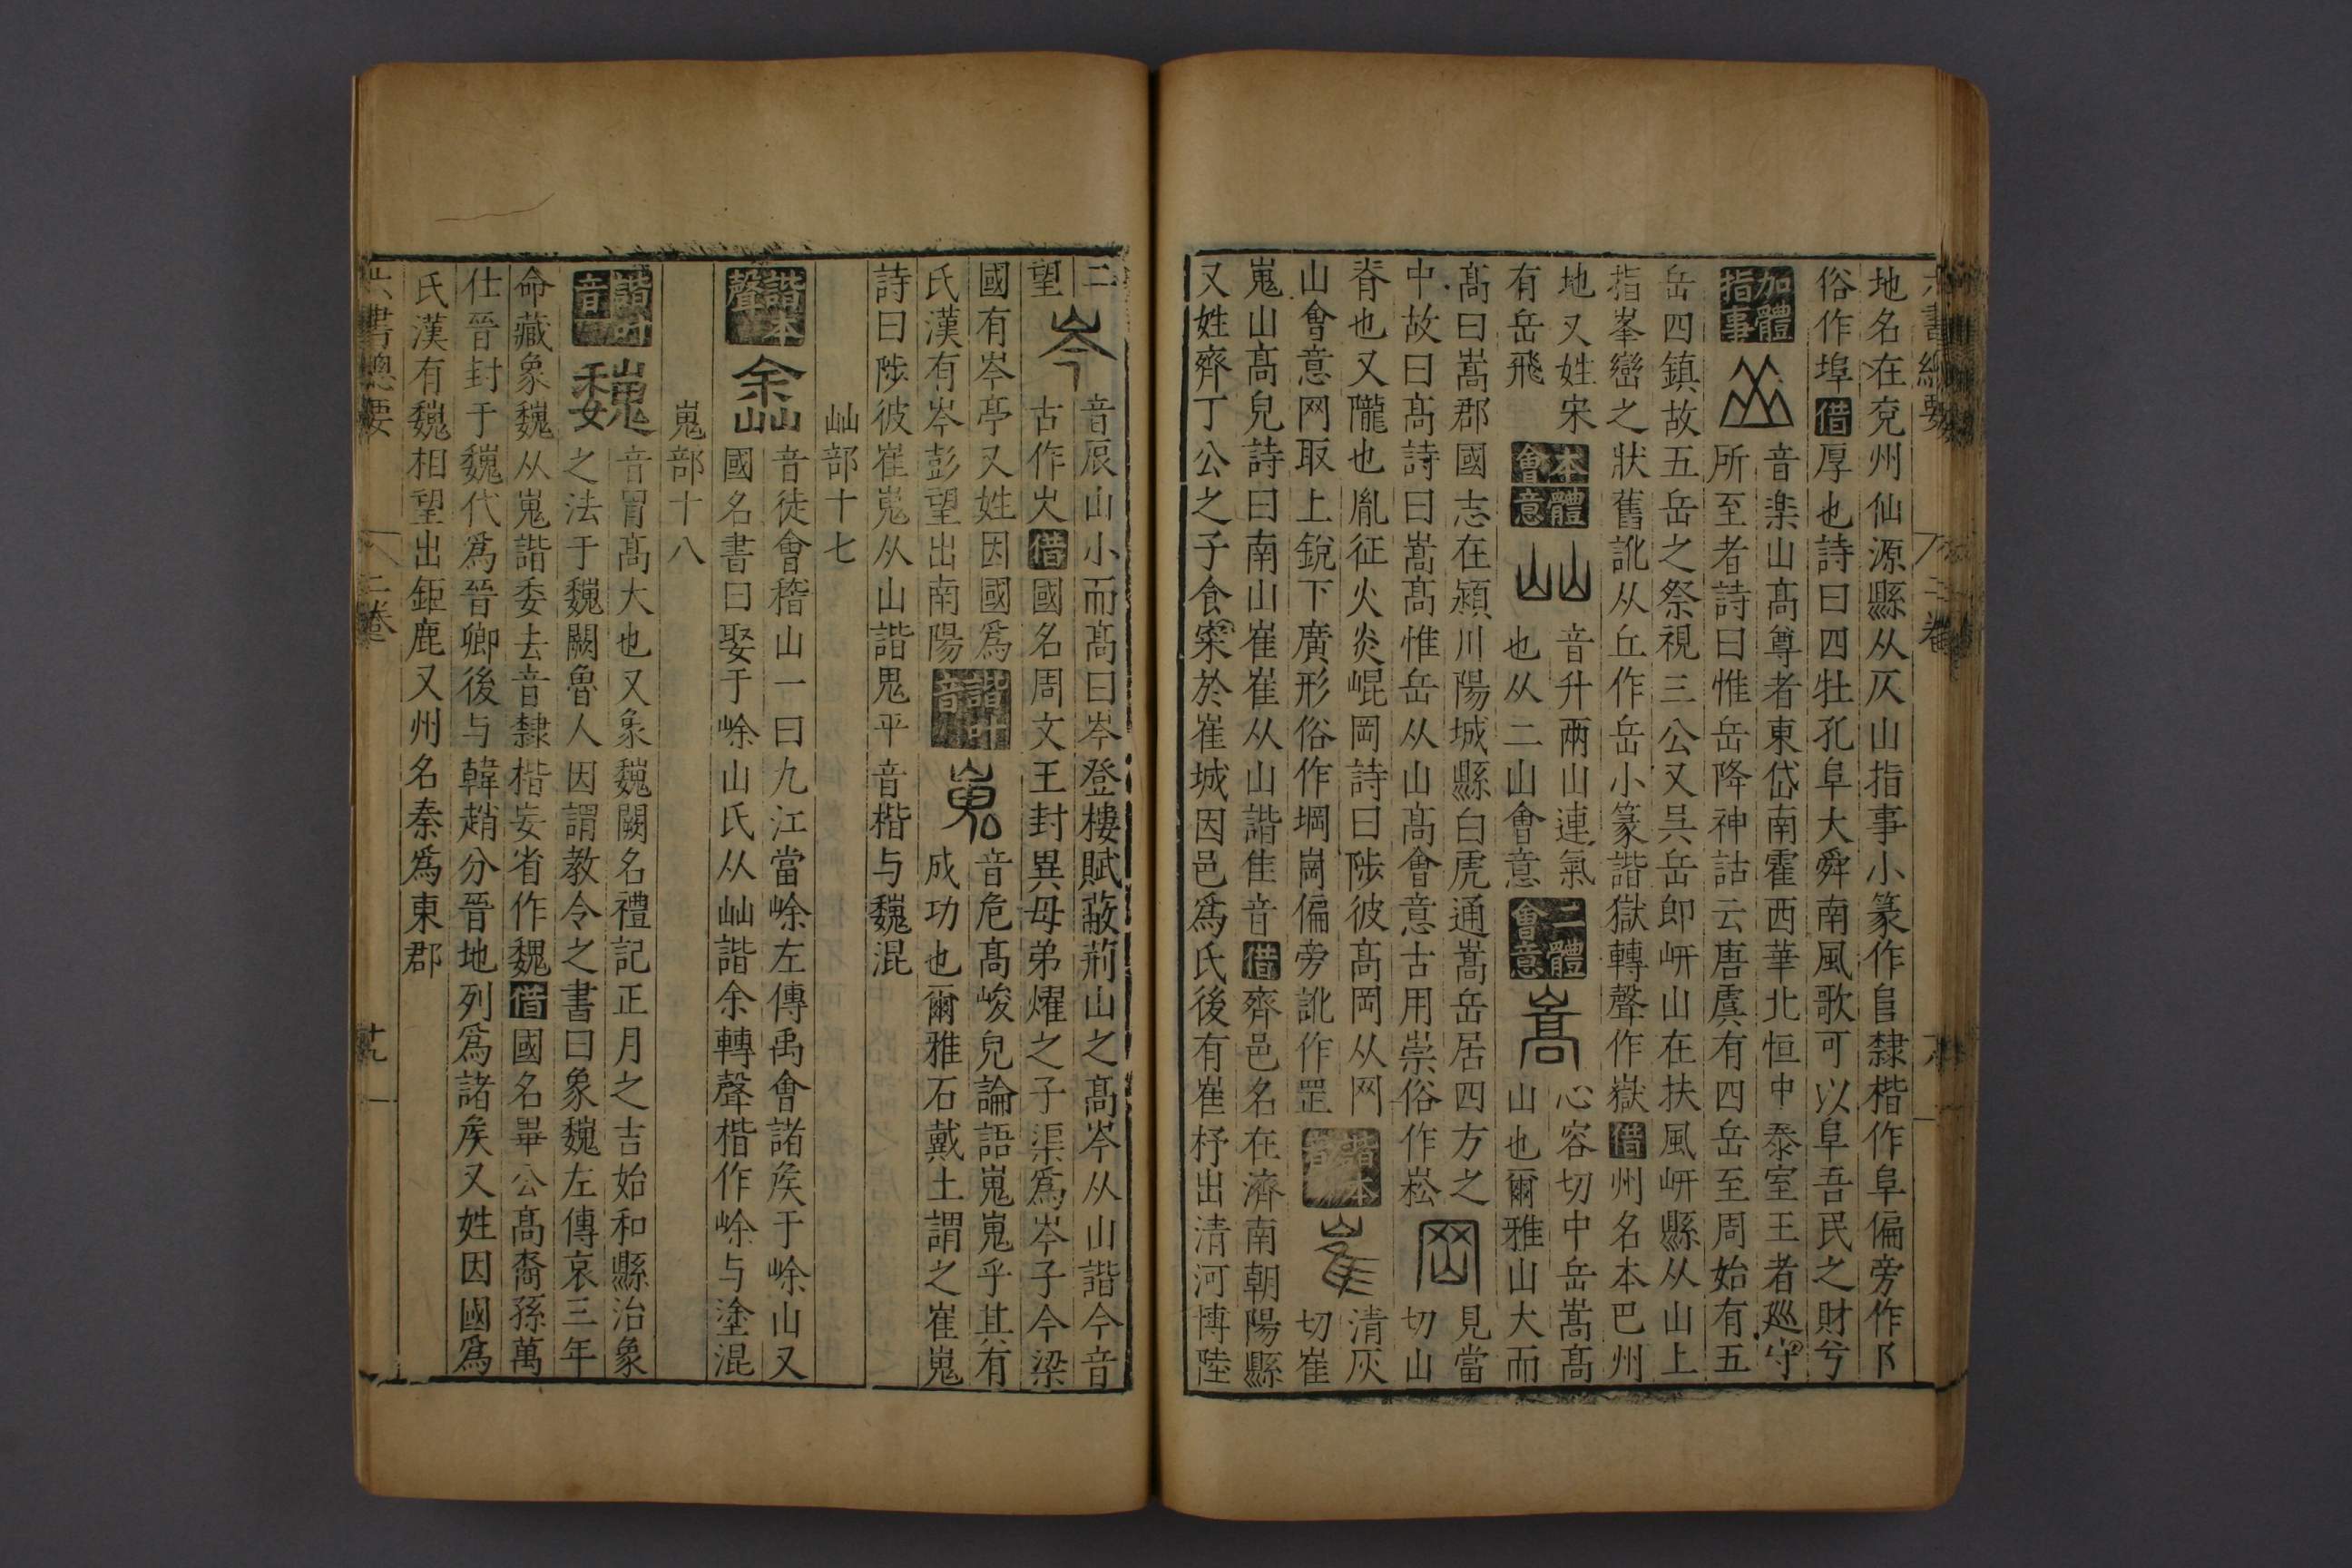 六書總要
二卷
地名在兗州仙源縣从仄山指事小篆作𨸏隸楷作阜偏旁作阝
俗作埠借厚也詩曰四牡孔阜大舜南風歌可以阜吾民之財兮
加體指事
音楽山高尊者東岱南霍西華北恒中泰室王者廵守
所至者詩曰惟岳降神詁云唐虞有四岳至周始有五
岳四鎮故五岳之祭視三公又吳岳即岍山在扶風岍縣从山上
指峯巒之狀舊訛从丘作岳小篆諧獄轉聲作嶽借州名本巴州
地又姓宋
有岳飛
本體會意
屾
音升兩山連氣
也从二山會意
二體會意
嵩
心容切中岳嵩高
山也爾雅山大而
高曰嵩郡國志在潁川陽城縣白虎通嵩岳居四方之
中故曰高詩曰嵩高惟岳从山高會意古用崇俗作崧
岡
見當
切山
脊也又隴也胤征火炎崐岡詩曰陟彼高岡从网
山會意网取上銳下廣形俗作堈崗偏旁訛作罡
諧本音
崔
清灰
切崔
嵬山高皃詩曰南山崔崔从山諧隹音借齊邑名在濟南朝陽縣
又姓齊丁公之子食寀於崔城因邑爲氏後有崔杼出清河博陸
二
望
岑
音㞋山小而高曰岑登樓賦蔽荊山之高岑从山諧今音
古作㞤借國名周文王封異母弟燿之子渠爲岑子今梁
國有岑亭又姓因國爲
氏漢有岑彭望出南陽
諧叶音
嵬
音危高峻皃論語嵬嵬乎其有
成功也爾雅石戴土謂之崔嵬
詩曰陟彼崔嵬从山諧鬼平音楷与巍混
屾部十七
諧本聲
嵞
音徒會稽山一曰九江當峹左傳禹會諸矦于峹山又
國名書曰娶于峹山氏从屾諧余轉聲楷作峹与塗混
嵬部十八
諧叶音
巍
音胃高大也又象巍闕名禮記正月之吉始和縣治象
之法于巍闕魯人因謂教令之書曰象巍左傳哀三年
命藏象巍从嵬諧委去音隸楷妄省作魏借國名畢公高裔孫萬
仕晉封于魏代爲晉卿後与韓趙分晉地列爲諸矦又姓因國爲
氏漢有魏相望出鉅鹿又州名秦爲東郡
六書總要
二卷
十九